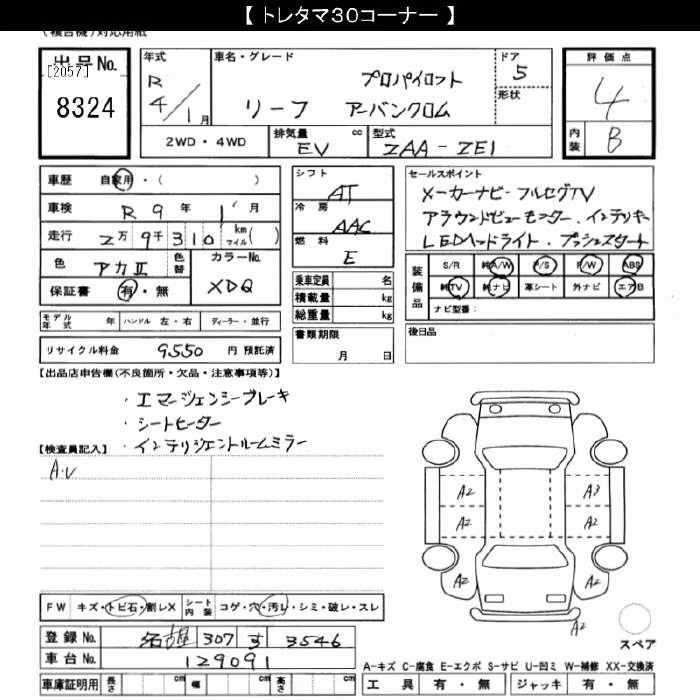 【 トレタマ30コーナー 】
(複合機)対応用紙
出品No.
[2057]
8324
年式
R
4/1月
車名・グレード
プロパイロット
リーフ アーバンクロム
ドア
5
形状
評価点
4
内装 B
2WD・4WD
排気量 cc
EV
型式
ZAA-ZE1
車歴 自家用・( )
車検 R9年 1月
走行 2万9千310 km マイル( )
色 アカII 色替
カラーNo.
XDQ
保証書 有・無
シフト
AT
冷房
AAC
燃料
E
セールスポイント
メーカーナビ・フルセグTV
アラウンドビューモニター・インテリキー
LEDヘッドライト・プッシュスタート
乗車定員 名
積載量 kg
総重量 kg
装備品
S/R 純A/W P/S P/W ABS
純TV 純ナビ 革シート 外ナビ エアB
ナビ型番:
モデル年式 年 ハンドル 左・右 ディーラー・並行
書類期限
月 日
後日品
リサイクル料金 9550 円 預託済
【出品店申告欄(不良箇所・欠品・注意事項等)】
・エマージェンシーブレーキ
・シートヒーター
・インテリジェントルームミラー
【検査員記入】
A.U
A2 A3
A2 A2
A2 A2
A2
FW キズ・トビ石・割レX シート内装 コゲ・穴・汚レ・シミ・破レ・スレ
登録No. 名古屋 307 す 3546
車台No. 129091
スペア
A-キズ C-腐食 E-エクボ S-サビ U-凹ミ W-補修 XX-交換済
車庫証明用 長さ cm 幅 cm 高さ cm
工具 有・無 ジャッキ 有・無